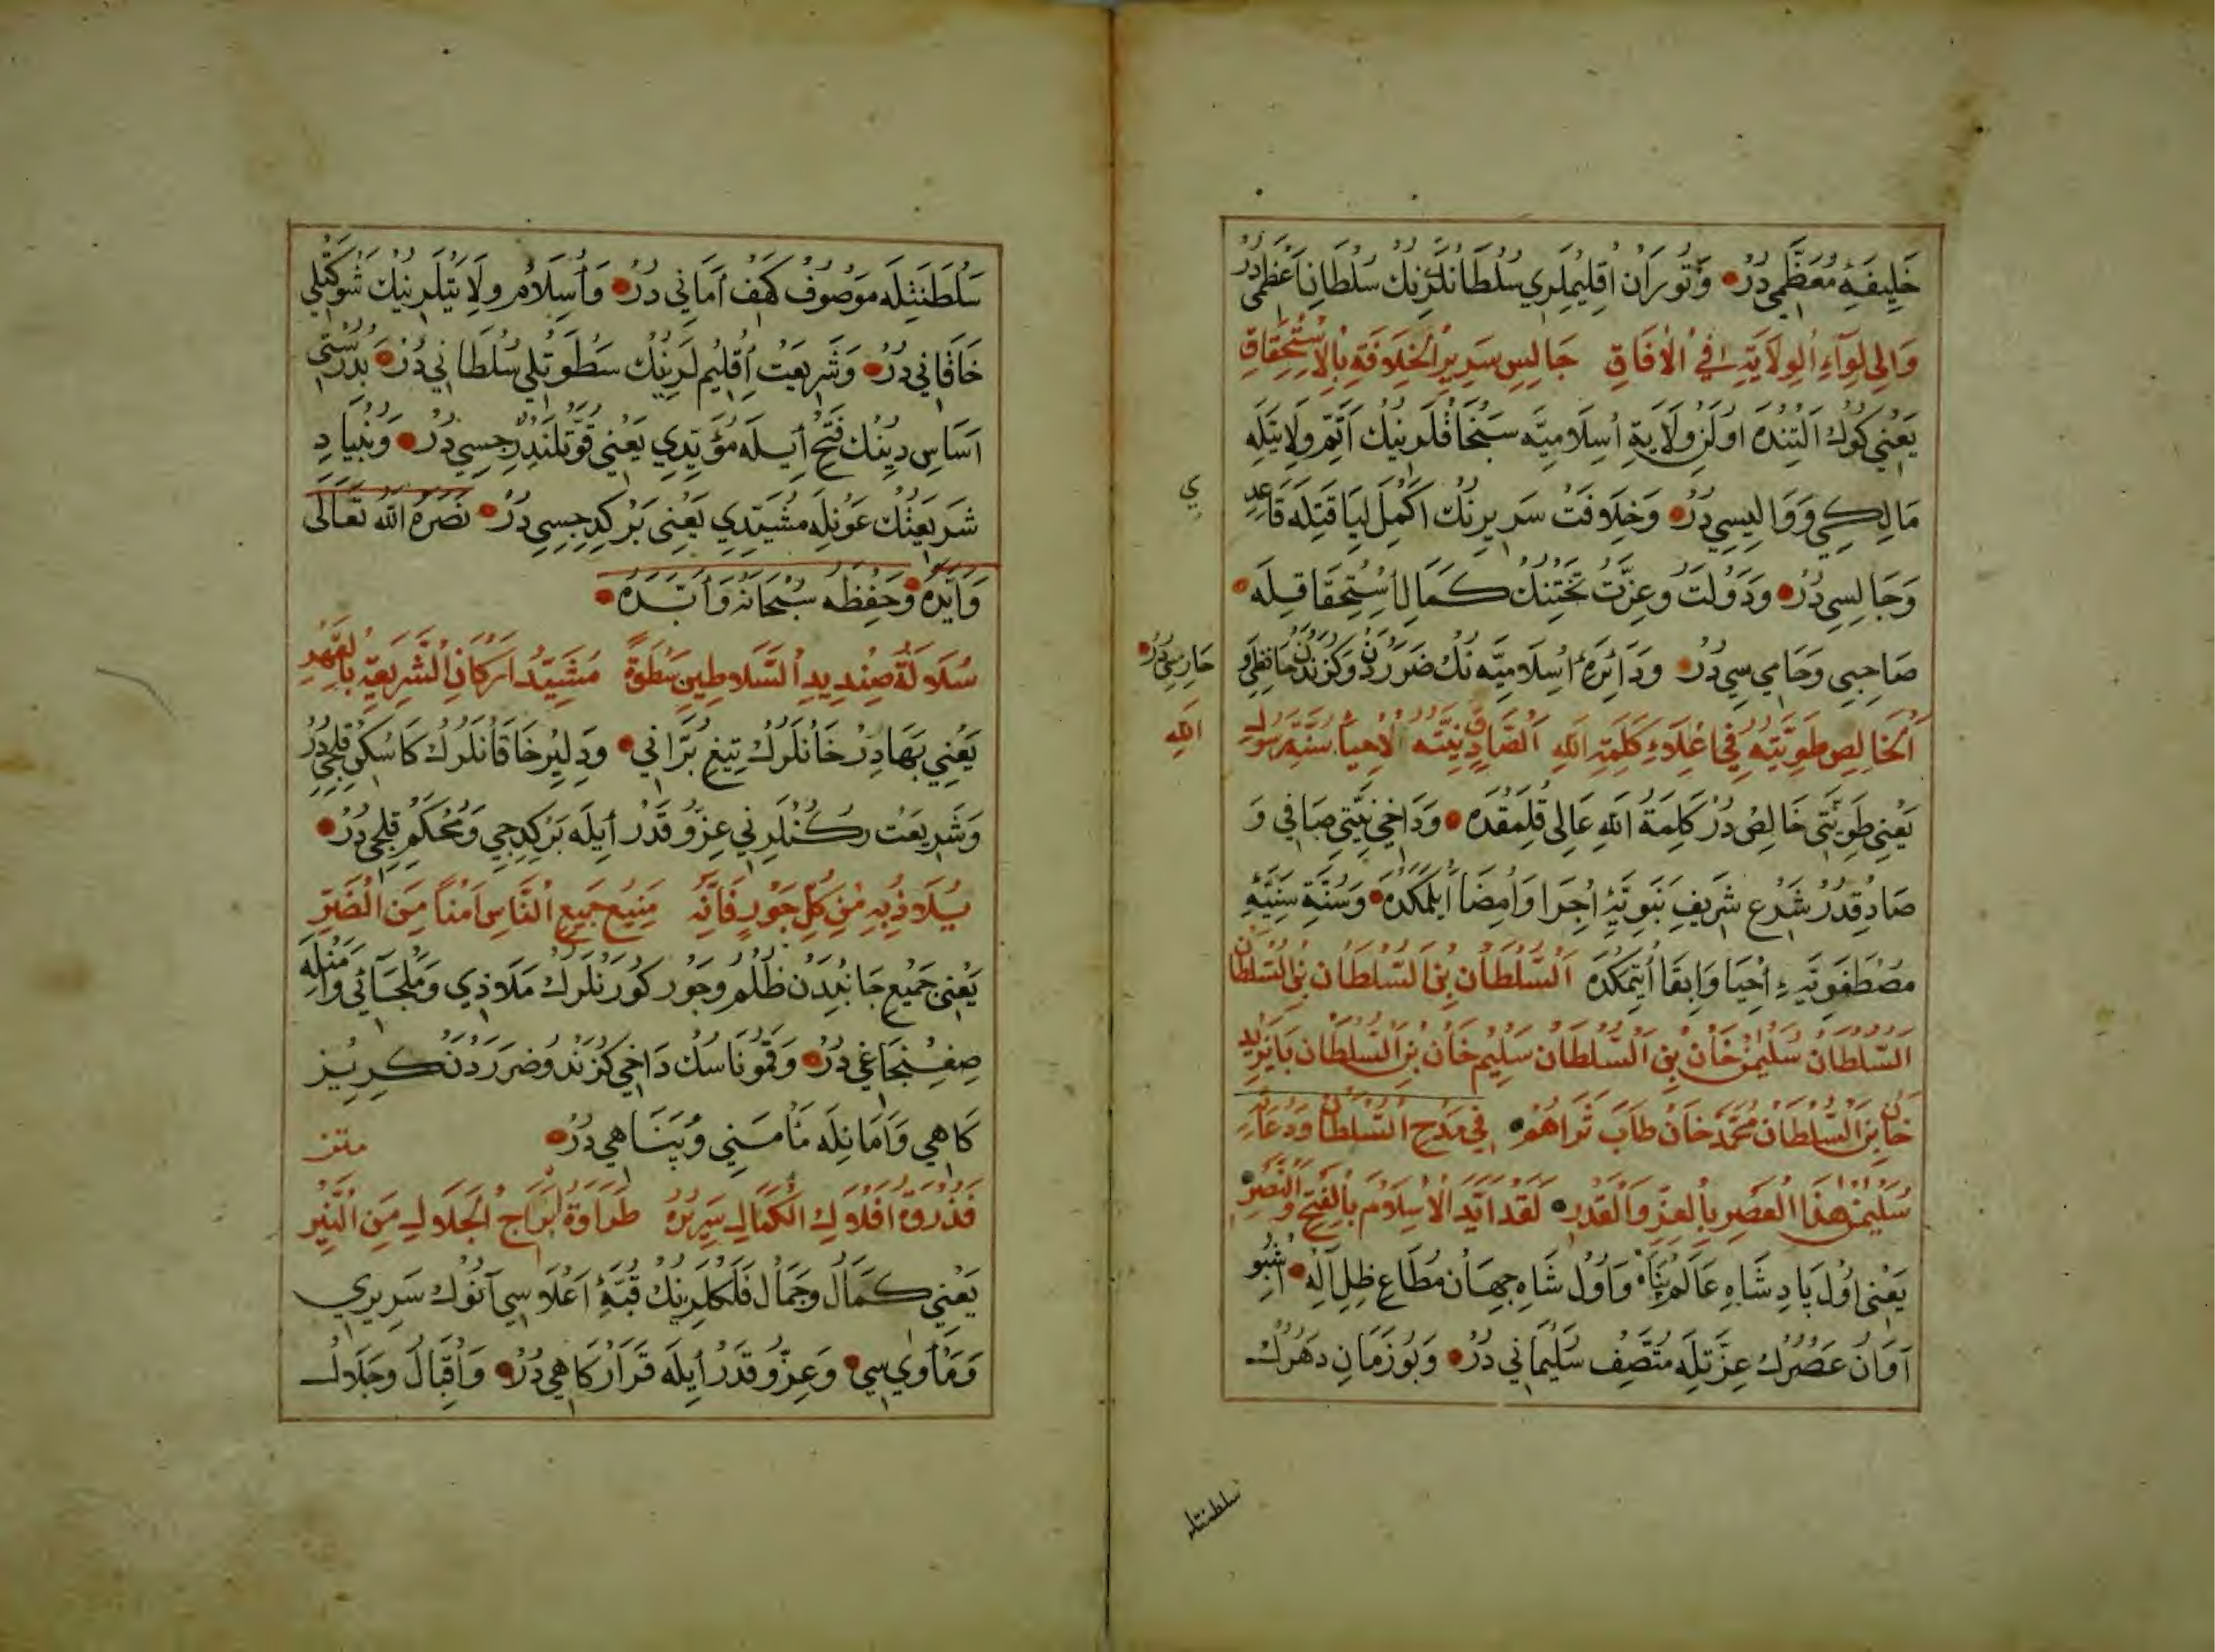 خَلِيفَهِٔ مُعَظَّمِي دُرْ وَتُورَانْ اُقِلِيمْلَرِي سُلْطَانْلَرِنِكْ سُلْطَانِ اَعْظَمِي دُرْ
وَالِي لِوَآءِ الْوِلَايَةِ فِي الْاٰفَاقِ جَالِسِ سَرِيرِ الْخِلَافَةِ بِالْاِسْتِحْقَاقِ
يَعْنِي كُوكْ اَلْتِنْدَه اُولَنْ وِلَايَةِ اُسِلَامِيَّه سَنْجَاقْلَرِنِيكْ اَتَمِّ وِلَايَتَلَه
مَالِكِي وَوَالِيسِي دُرْ وَخِلَافَتْ سَرِيرِنِكْ اَكْمَلِ لِيَاقَتِلَه قَاعِدِ
ي
وَجَالِسِي دُرْ وَدَوْلَتْ وَعِزَّتْ تَخْتِنُكْ كَمَالِ اُسْتِحْقَاقِلَه
صَاحِبِي وَحَامِي سِي دُرْ وَدَائِرَهِٔ اُسِلَامِيَّه نُكْ ضَرَرْدَنْ وَكَزَنْدْدَنْ حَافِظِي وَ
حَارِسِي دُرْ
اَلْخَالِصِ طَوِيَّتِهِ فِي اعْلَاءِ كَلِمَةِ اللهِ اَلصَّادِقِ نِيَّتِه لِاِحْيَاءِ سُنَّةِ رَسُولِ
اللهِ
يَعْنِي طَوِيَّتِي خَالِصْ دُرْ كَلِمَةُ اللهِ عَالِي قُلِمَقْدَه وَدَاخِي نِيَّتِي صَافِي وَ
صَادِقْدُرْ شَرْعِ شَرِيفِ نَبَوِيَّهِٔ اُجْرَا وَاُمْضَا اَيْلَمَكْدَه وَسُنَّةِ سَنِيَّهِٔ
مُصْطَفَوِيَّهِٔ اُحْيَا وَاِبْقَا اُيتِمَكْدَه اَلسُّلْطَانْ بْنِ السُّلْطَانْ بْنِ السُّلْطَانْ
السُّلْطَانْ سُلَيْمٰنْ خَانْ بْنِ السُّلْطَانْ سَلِيمْ خَانْ بْنِ السُّلْطَانْ بَايَزِيدْ
خَانْ بْنِ السُّلْطَانْ مُحَمَّدْ خَانْ طَابَ ثَرَاهُمْ فِي مَدْحِ السُّلْطَانْ وَدُعَائِهِ
سُلَيْمٰنُ هٰذَا الْعَصْرِ بِالْعِزِّ وَالْقَدْرِ لَقَدْ اَيَّدَ الْاِسْلَامَ بِالْفَتْحِ وَالنَّصْرِ
يَعْنِي اُولْ پَادِشَاهِ عَالَمْ پَنَاهْ وَاُولْ شَاهِ جِهَانْ مُطَاعِ ظِلِّ اِلٰهْ اُشْبُو
آوَانْ عَصْرُكْ عِزَّتِلَه مُتَّصِفْ سُلَيْمَانِي دُرْ وَبُو زَمَانِ دَهْرُكْ
سلطنتله
سَلْطَنَتِلَه مَوْصُوفْ كَهْفِ اَمَانِي دُرْ وَاُسِلَامْ وِلَايَتْلَرِنِيكْ شَوْكَتْلِي
خَاقَانِي دُرْ وَشَرِيعَتْ اُقِلِيمْلَرِنِيكْ سَطْوَتْلِي سُلْطَانِي دُرْ بِدُرُسْتِي
اَسَاسِ دِينِكْ فَتْحِ اُيلَه مُؤَيِّدِي يَعْنِي قُوَّتْلَنْدِرِجِسِي دُرْ وَبُنْيَادِ
شَرِيعَتْنُكْ عَوْنِلَه مُشَيِّدِي يَعْنِي بَرْكِدِجِسِي دُرْ نَصَرَهُ اللهُ تَعَالَى
وَاَيَّدَهُ وَحَفِظَهُ سُبْحَانَهُ وَاَبَّدَهُ
سُلَالَةُ صِنْدِيدِ السَّلَاطِينِ سَطْوَةً مُشَيِّدُ اَرْكَانِ الشَّرِيعَةِ بِالْقَهْرِ
يَعْنِي بَهَادِرْ خَانْلَرُكْ تِيغِ بُرَّانِي وَدِلِيرْ خَاقَانْلَرُكْ كَاسُكِنْ قِلِجِي دُرْ
وَشَرِيعَتْ رُكُنْلَرِنِي عِزُّ وقَدْرْ اُيلَه بَرْكِدِجِي وَمُحْكَمْ قِلِجِي دُرْ
يُلَاذُ بِهِ مِنْ كُلِّ جَوْرٍ فَاِنَّهُ مَنِيعُ جَمِيعِ النَّاسِ اَمْنًا مِنَ الضَّرِّ
يَعْنِي جَمِيعِ جَانِبْدَنْ ظُلْمْ وجَوْرْ كُورَنْلَرُكْ مَلَاذِي وَمَلْجَائِي وَاَمْنِلَه
صِغِنْجَاغِي دُرْ وَقَمُو نَاسُكْ دَاخِي كَزَنْدْ وضَرَرْدَنْ كُرِيزْ
كَاهِي وَاَمَانِلَه مَأْمَنِي وَپَنَاهِي دُرْ
فَذُرْوَةُ اَفْلَاكِ الْكَمَالِ سَرِيرُهُ طَرَاوَةُ اَبْرَاجِ الْجَلَالِ مِنَ النَّيِّرِ
يَعْنِي كَمَالْ وجَمَالْ فَلَكْلَرِنِكْ قُبَّهِٔ اَعْلَاسِي آنُوكْ سَرِيرِي
وَمَأْوٰي سِي وَعِزُّ وقَدْرْ اُيلَه قَرَارْكَاهِي دُرْ وَاُقْبَالْ وجَلَالْ